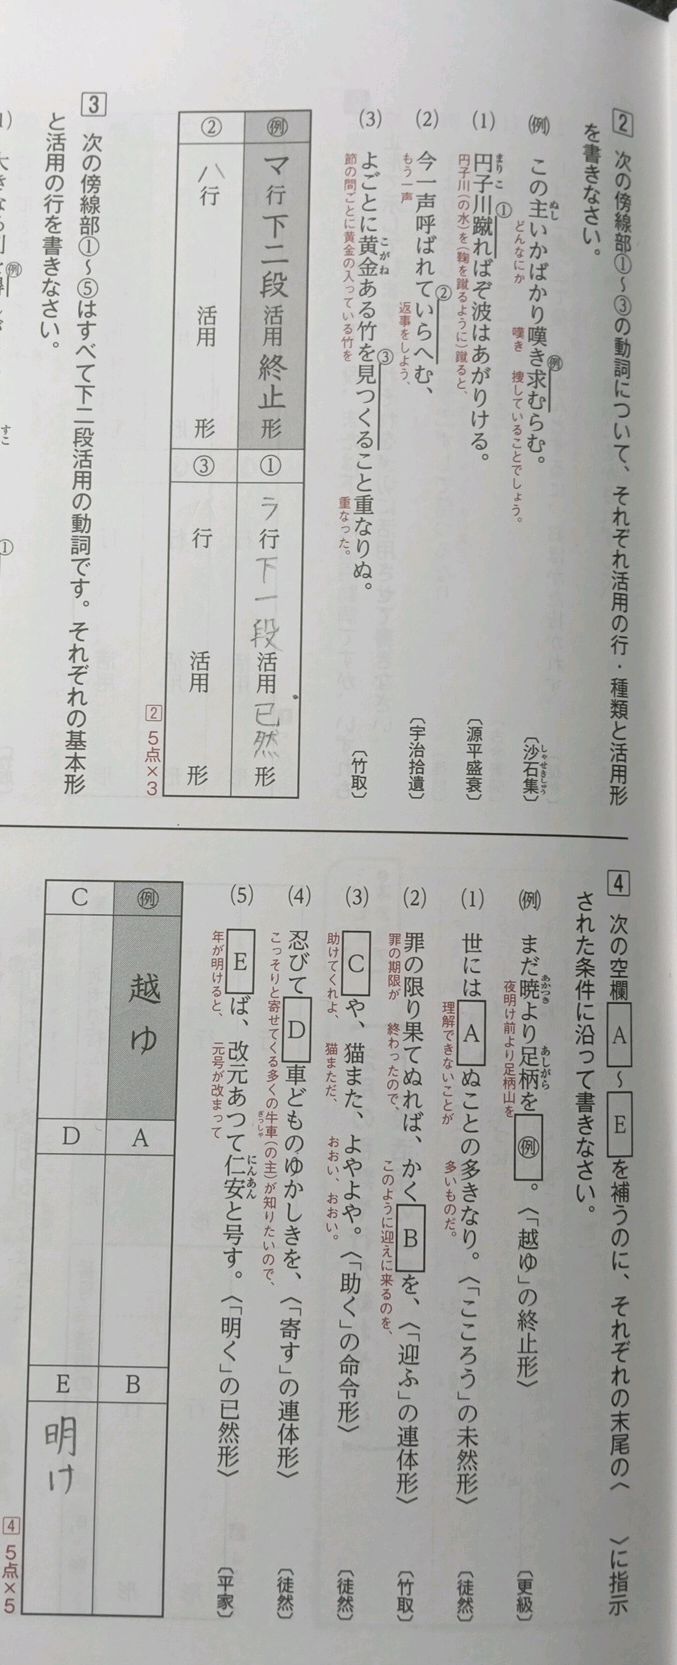 2 次の傍線部①～③の動詞について、それぞれ活用の行・種類と活用形
を書きなさい。
㋹ この主いかばかり嘆き求むらむ。 〔沙石集〕
ぬし
例
しゃせきしゅう
どんなにか 嘆き 捜していることでしょう。
(1) 円子川蹴ればぞ波はあがりける。 〔源平盛衰〕
まりこ
①
円子川(の水)を(鞠を蹴るように)蹴ると、
(2) 今一声呼ばれていらへむ、 〔宇治拾遺〕
②
もう一声 返事をしよう、
(3) よごとに黄金ある竹を見つくること重なりぬ。 〔竹取〕
こがね
③
節の間ごとに黄金の入っている竹を 重なった。
例 マ行下二段活用終止形
① ラ行下一段活用已然形
② ハ行 活用 形
③ 行 活用 形
2 5点×3
3 次の傍線部①～⑤はすべて下二段活用の動詞です。それぞれの基本形
と活用の行を書きなさい。
例
すこ
①
4 次の空欄 A ～ E を補うのに、それぞれの末尾の〈 〉に指示
された条件に沿って書きなさい。
例 まだ暁より足柄を 例 。〈「越ゆ」の終止形〉 〔更級〕
あかつき
あしがら
夜明け前より足柄山を
(1) 世には A ぬことの多きなり。〈「こころう」の未然形〉 〔徒然〕
理解できないことが 多いものだ。
(2) 罪の限り果てぬれば、かく B を、〈「迎ふ」の連体形〉 〔竹取〕
罪の期限が 終わったので、 このように迎えに来るのを、
(3) C や、猫また、よやよや。〈「助く」の命令形〉 〔徒然〕
助けてくれよ、 猫まただ、 おおい、おおい。
(4) 忍びて D 車どものゆかしきを、〈「寄す」の連体形〉 〔徒然〕
こっそりと寄せてくる多くの牛車(の主)が知りたいので、
ぎっしゃ
(5) E ば、改元あつて仁安と号す。〈「明く」の已然形〉 〔平家〕
にんあん
年が明けると、 元号が改まって
例 越ゆ
A
B
C
D
E 明け
4 5点×5